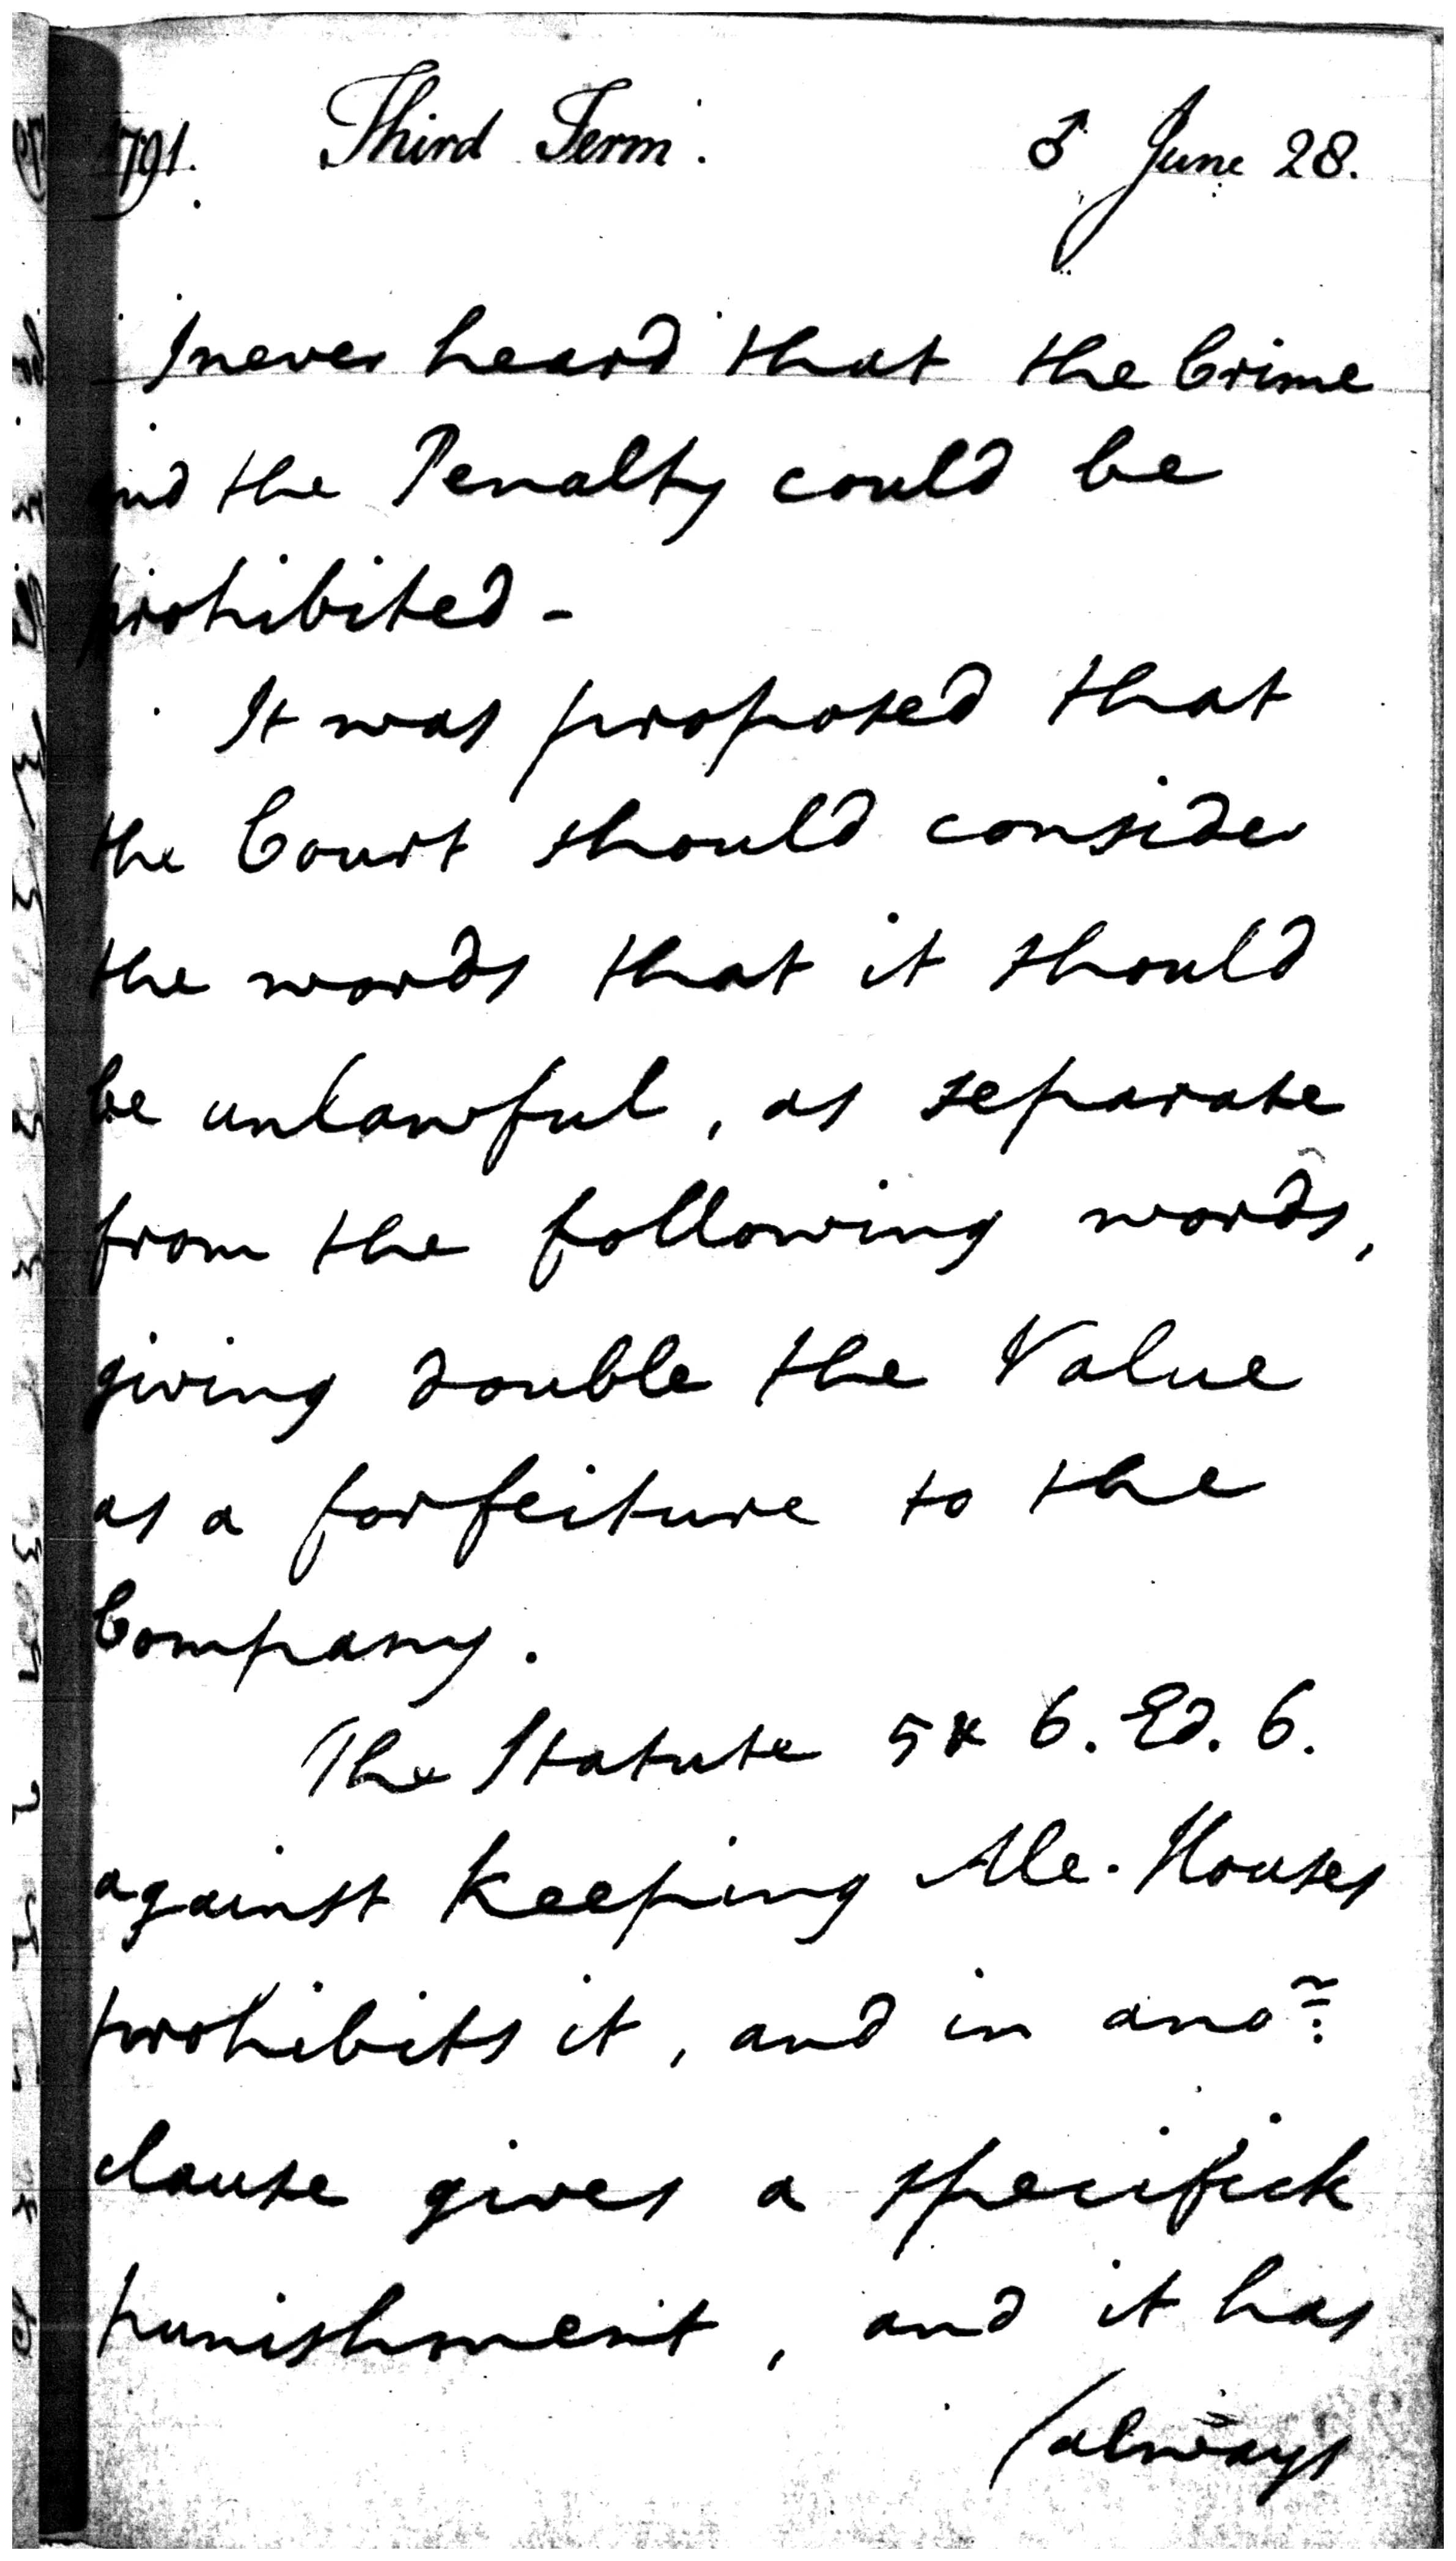 1791. Third Term. ♂ June 28.
I never heard that the Crime
and the Penalty could be
prohibited -
It was proposed that
the Court should consider
the words that it should
be unlawful, as separate
from the following words,
giving double the Value
as a forfeiture to the
Company.
The Statute 5 & 6. Ed. 6.
against keeping Ale-Houses
prohibits it, and in ano:
clause gives a specifick
punishment, and it has
/always